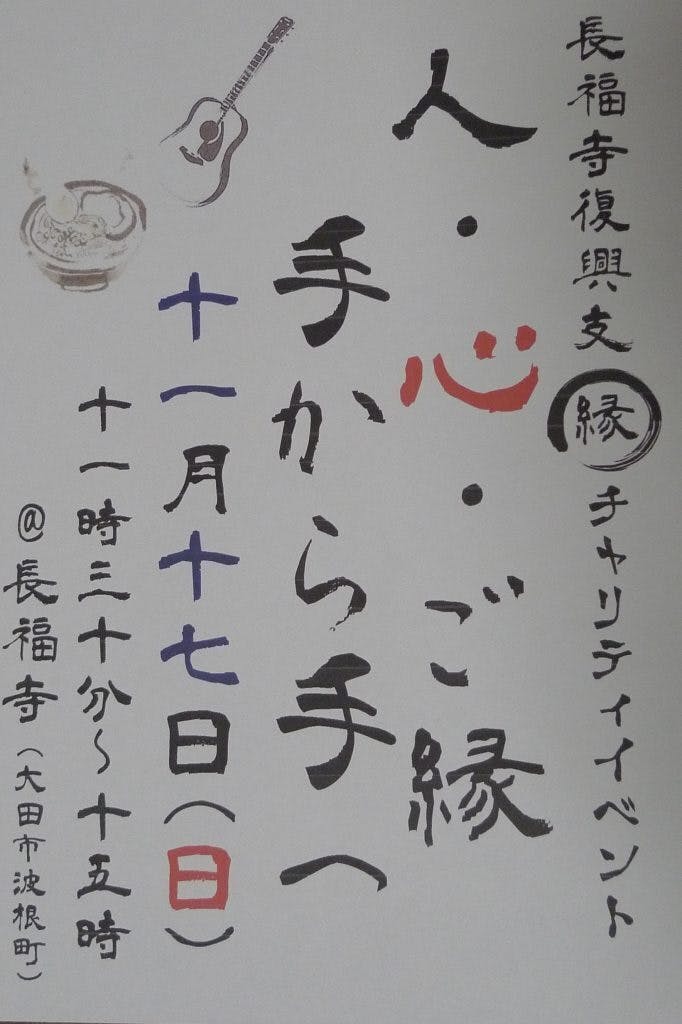 長福寺復興支縁チャリティイベント
人・心・ご縁
手から手へ
十一月十七日(日)
十一時三十分~十五時
@長福寺(大田市波根町)